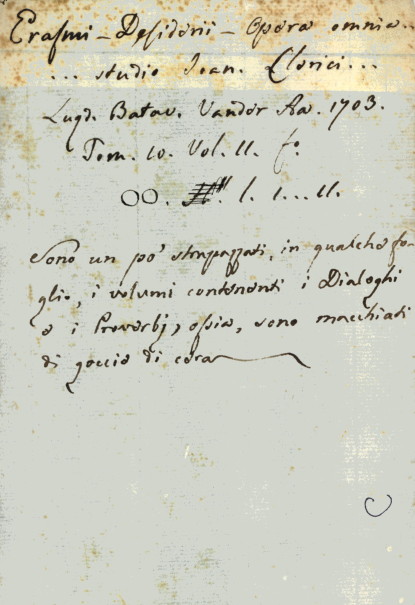 Erasmi - Desiderii - Opera omnia...
... studio Joan. Clerici...
Lugd. Batav. Vander Aa. 1703.
Tom. 10. Vol. 11. f.º
OO. l. 1...11.
Sono un pò strapazzati, in qualche fo-
glio, i volumi contenenti i Dialoghi
e i Proverbj, ossia, sono macchiati
di goccie di cera